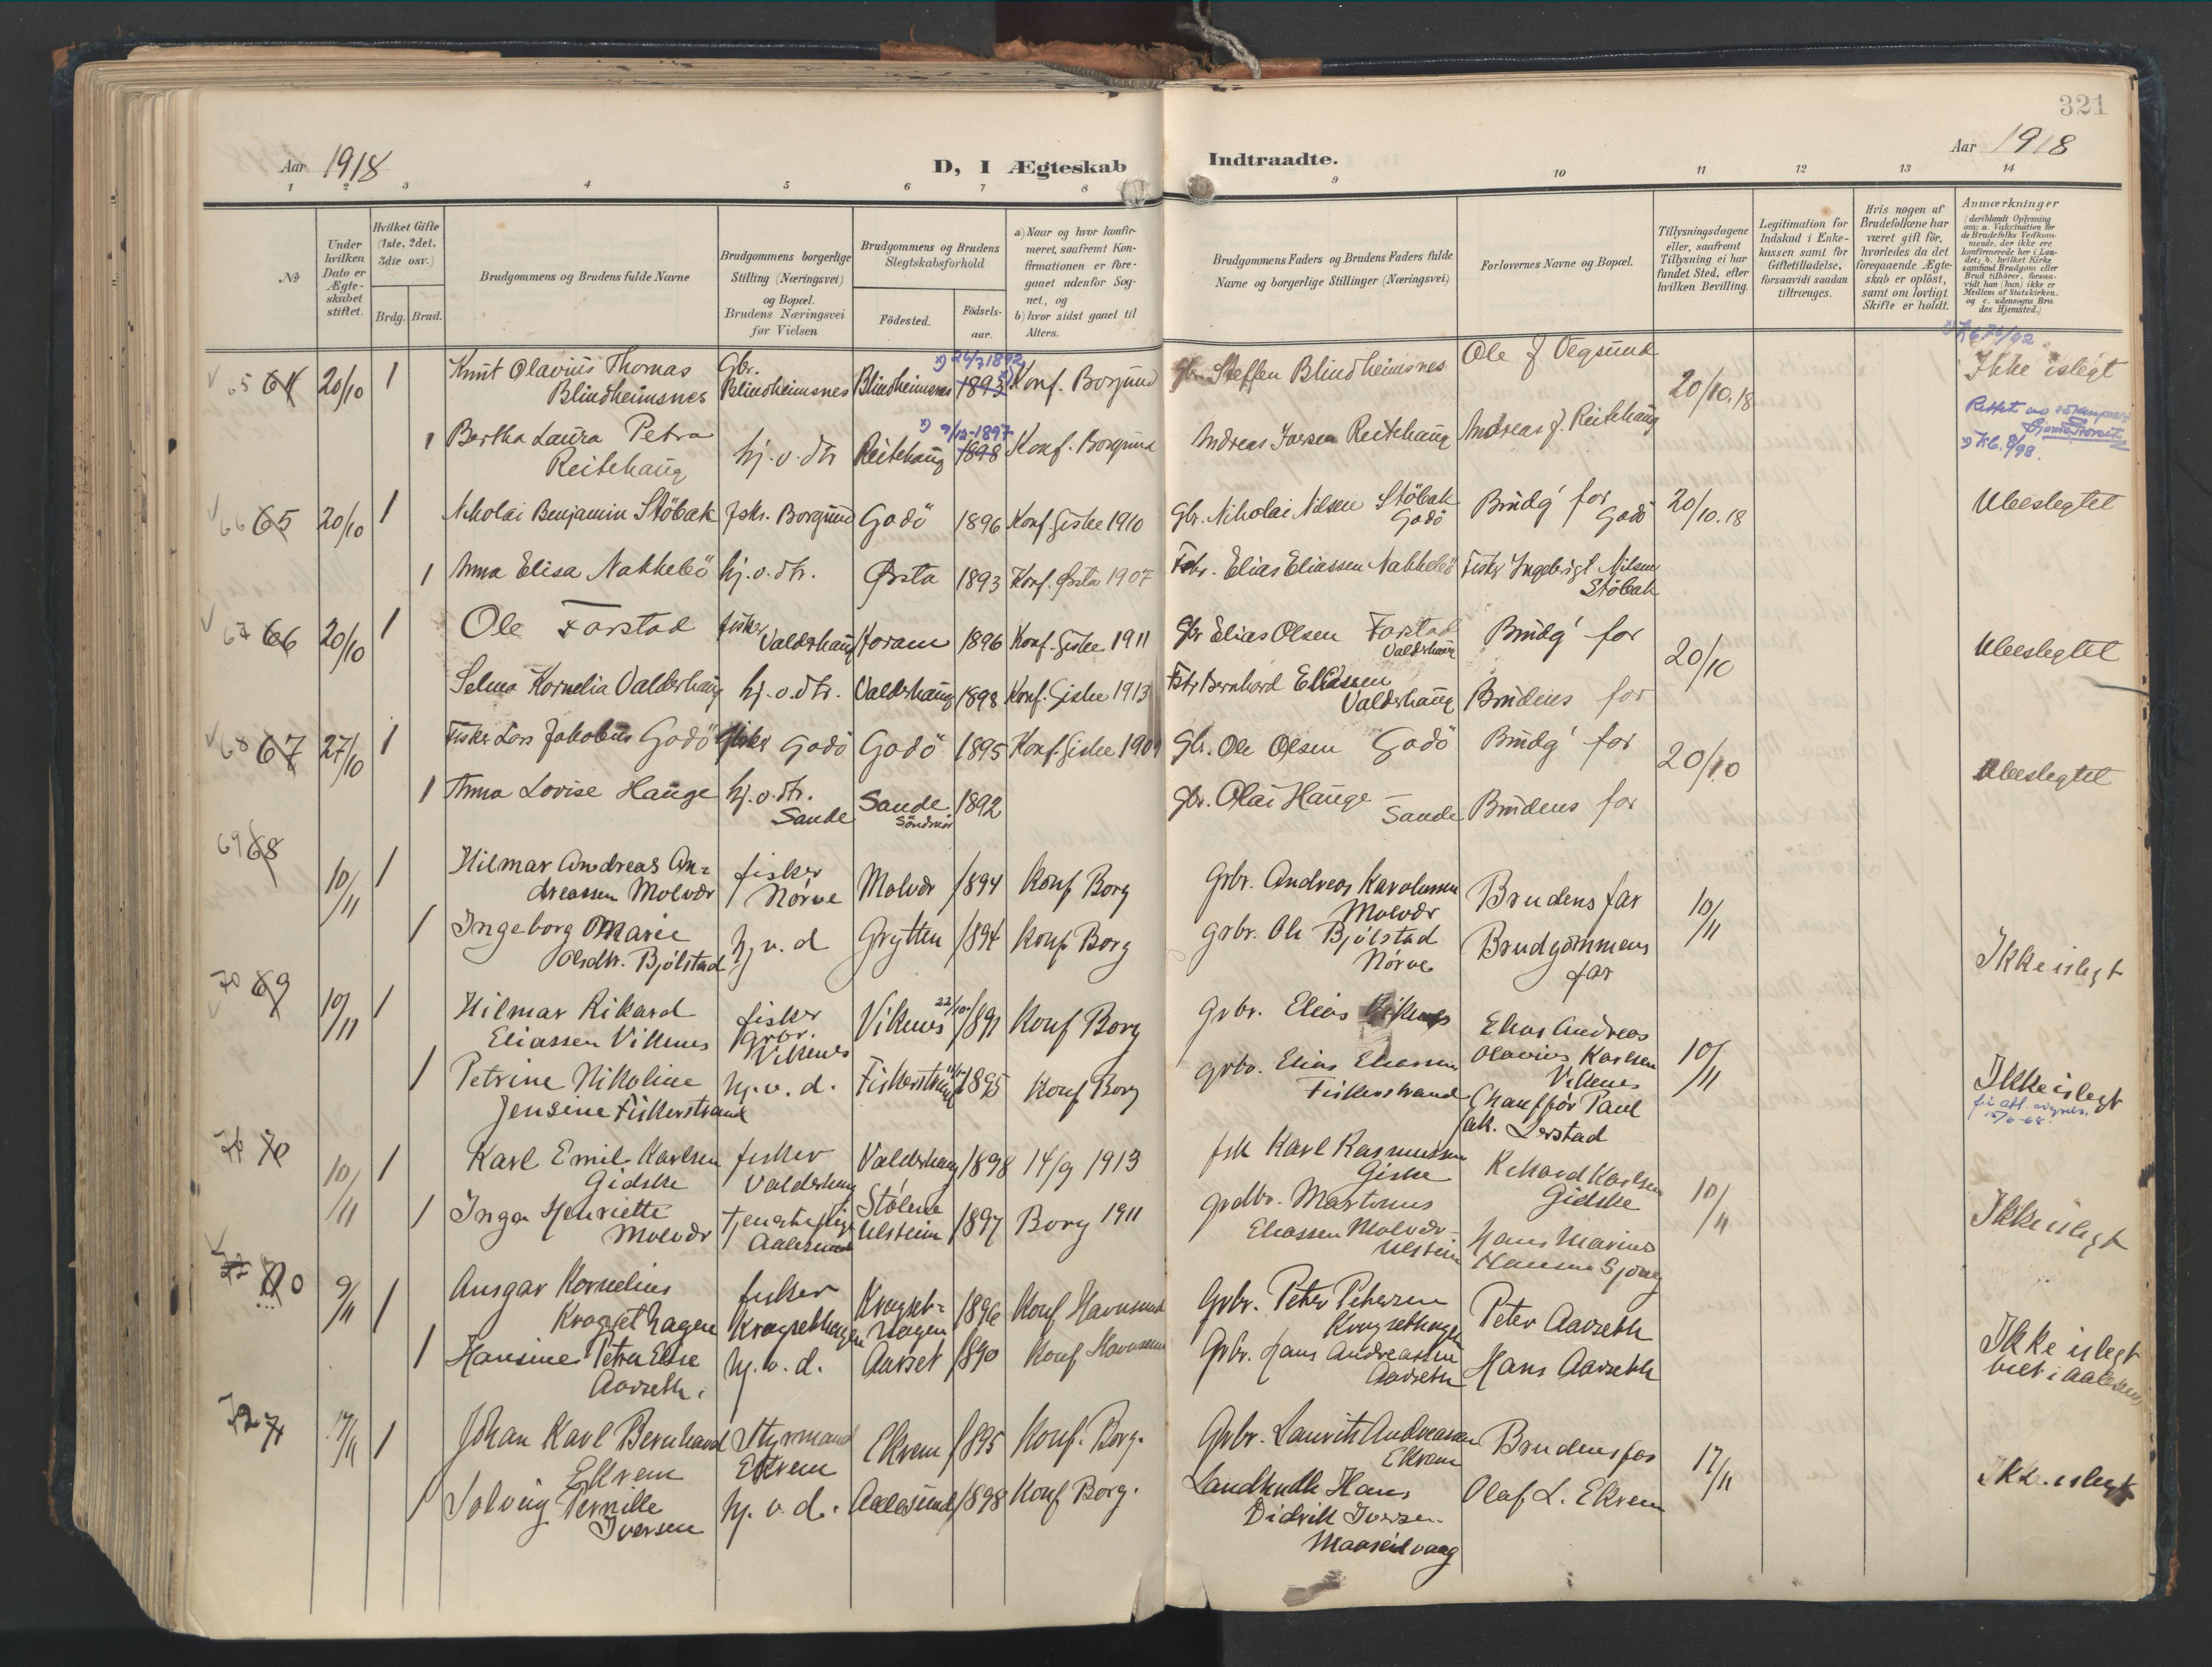 321
Aar 1918
D, I Ægteskab Indtraadte.
Aar 1918
1 2 3 4 5 6 7 8 9 10 11 12 13 14
No
Under hvilken Dato er Ægteskabet stiftet.
Hvilket Gifte (1ste, 2det, 3die osv.)
Brdg. Brud.
Brudgommens og Brudens fulde Navne
Brudgommens borgerlige Stilling (Næringsvei) og Bopæl. Brudens Næringsvei før Vielsen
Brudgommens og Brudens Slegtskabsforhold
Fødested. Fødselsaar.
a) Naar og hvor konfirmeret, saafremt Konfirmationen er foregaaet udenfor Sognet, og
b) hvor sidst gaaet til Alters.
Brudgommens Faders og Brudens Faders fulde Navne og borgerlige Stillinger (Næringsvei)
Forlovernes Navne og Bopæl.
Tillysningsdagene eller, saafremt Tillysning ei har fundet Sted, efter hvilken Bevilling.
Legitimation for Indskud i Enkekassen samt for Giftetilladelse, forsaavidt saadan tiltrænges.
Hvis nogen af Brudefolkene har været gift før, hvorledes da det foregaaende Ægteskab er opløst, samt om lovligt Skifte er holdt.
Anmærkninger
(deriblandt Oplysning om: a. Vakcination for de Brudefolks Vedkommende, der ikke ere konfirmerede her i Landet; b. hvilket Kirkesamfund Brudgom eller Brud tilhører, forsaavidt han (hun) ikke er Medlem af Statskirken, og c. udensogns Brudes Hjemsted.)
65 64 20/10 1 Knut Olavius Thomas Blindheimsnes Gbr. Blindheimsnes Blindheimsnes 24/7 1892 1893 Konf. Borgund Gbr. Steffen Blindheimsnes Ole J Vegsund 20/10.18 Ikke islegt
1 Bertha Laura Petra Reitehaug hj.v.dtr Reitehaug 9/12-1897 1898 Konf. Borgund Andreas Iversen Reitehaug Andreas J. Reitehaug
66 65 20/10 1 Nikolai Benjamin Stöbak fskr. Borgund Godö 1896 Konf. Giske 1910 Gbr. Nikolai Nilsen Stöbak Godö Brudg' far Godö 20/10.18 Ubeslegtet
1 Anna Elisa Nakkebö hj.v.dtr. Ørsta 1893 Konf. Ørsta 1907 Elias Eliassen Nakkebö Fisker Ingebrigt Nilsen Stöbak
67 66 20/10 1 Ole Farstad fisker Valderhaug Haram 1896 Konf. Giske 1911 Gbr Elias Olsen Farstad Valderhaug Brudg' far 20/10 Ubeslegtet
Selma Kornelia Valderhaug hj.v.dtr. Valderhaug 1898 Konf. Giske 1913 Bernhard Eliassen Valderhaug Brudens far
68 67 27/10 1 Fisker Lars Jakobus Godö fisker Godö Godö 1895 Konf. Giske 1909 Gbr. Ole Olsen Godö Brudg' far 20/10 Ubeslegtet
1 Anna Lovise Hauge hj.v.dtr. Sande Sande Söndmör 1892 Gbr. Olai Hauge Sande Brudens far
69 68 10/11 1 Hilmar Andreas Andreassen Molvær fisker Nörve Molvær 1894 Konf Borg Grbr. Andreas Karolussen Molvær Brudens far 10/11
1 Ingeborg Marie Olsdtr. Bjölstad hj v. d Grytten 1894 Konf Borg Grbr. Ole Bjölstad Nörve Brudgommens far Ikke islegt
70 69 10/11 1 Hilmar Rikard Eliassen Viknes fisker Grbr. Viknes Viknes 22/10 1891 Konf Borg Grbr. Elias Viknes Elias Andreas Olavius Karlsen Viknes 10/11
1 Petrine Nikoline Jensine Fiskerstrand hj. v. d. Fiskerstrand 1895 Konf Borg Grbr. Elias Eliassen Fiskerstrand Chauffør Paul Jak. Lerstad Ikke islegt
70 10/11 1 Karl Emil Karlsen Gidske fisker Valderhaug Valderhaug 1898 14/9 1913 fsk Karl Rasmussen Giske Rikard Karlsen Gidske 10/11
1 Inga Henriette Molvær Tjenestepige Aalesund Ulstein 1897 Borg 1911 Martinus Eliassen Molvær Ulstein Hans Marius Hansen Ikke islegt
9/11 1 Ansgar Kornelius Kragsethagen fisker Kragsethagen Kragsethagen 1896 Konf Havnsund Grbr. Peter Petersen Kragsethagen Peter Aarseth
1 Hansine Petra Elise Aarseth. hj. v. d. Aarset 1890 Konf Grbr. Hans Andreassen Aarseth Hans Aarseth Ikke islegt viet i Aalesund
72 71 17/11 1 Johan Karl Bernhard Ekrem Styrmand Ekrem Ekrem 1895 Konf. Borg. Grbr. Laurits Andreassen Ekrem Brudens far 17/11
1 Solveig Pernille Iversen hj. v. d. Aalesund 1898 Konf Borg. Landhandler Hans Didrik Iversen Maaseidvaag Olaf L. Ekrem Ikke islegt